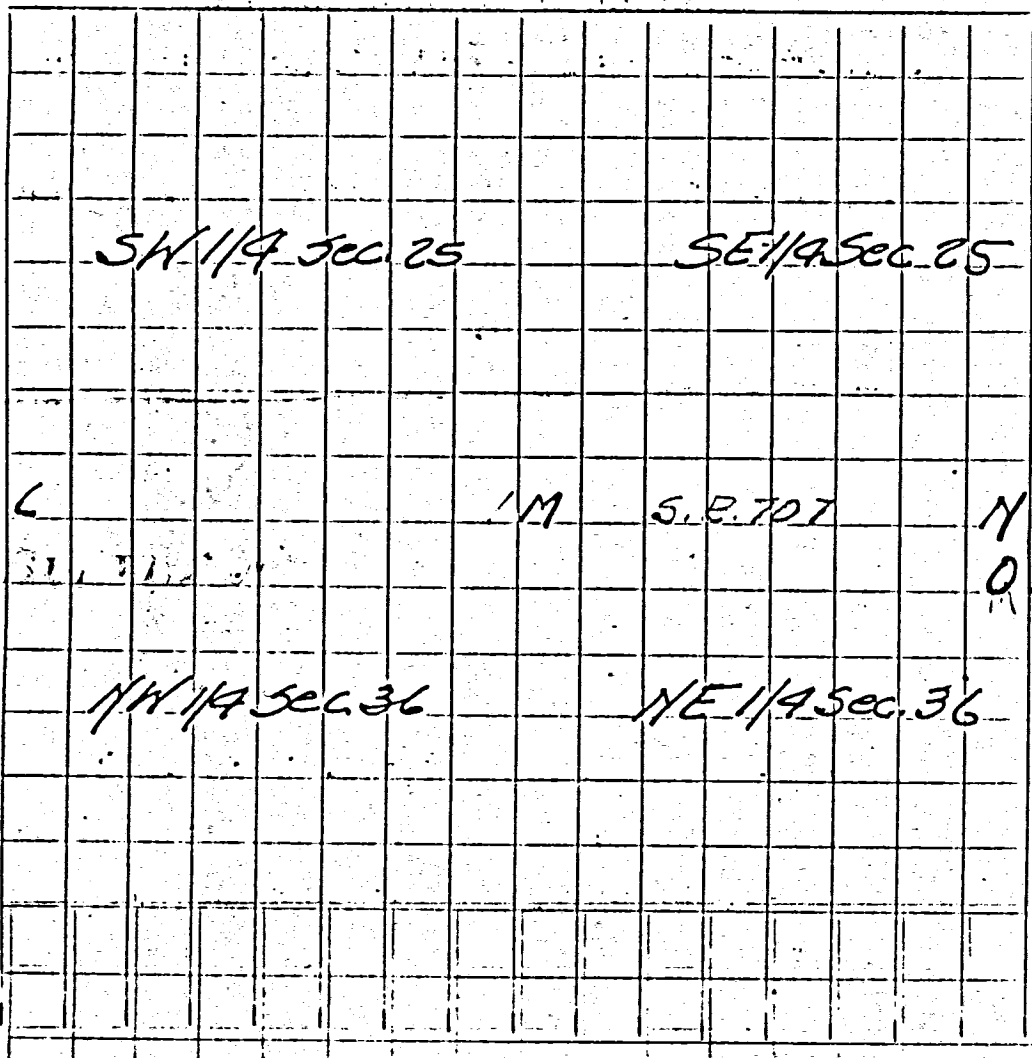 SW 1/4 Sec. 25 SE 1/4 Sec. 25
L M S.R. 707 N
O
NW 1/4 Sec. 36 NE 1/4 Sec. 36